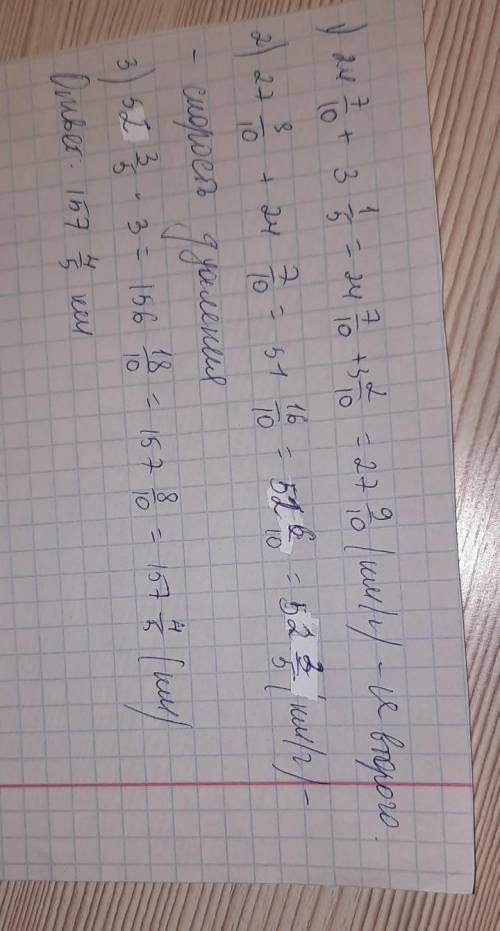 1) 24 7/10 + 3 1/5 = 24 7/10 + 3 2/10 = 27 9/10 (км/ч) - V второго.
2) 27 9/10 + 24 7/10 = 51 16/10 = 52 6/10 = 52 3/5 (км/ч) -
- скорость удаления
3) 52 3/5 · 3 = 156 18/10 = 157 8/10 = 157 4/5 (км)
Ответ: 157 4/5 км